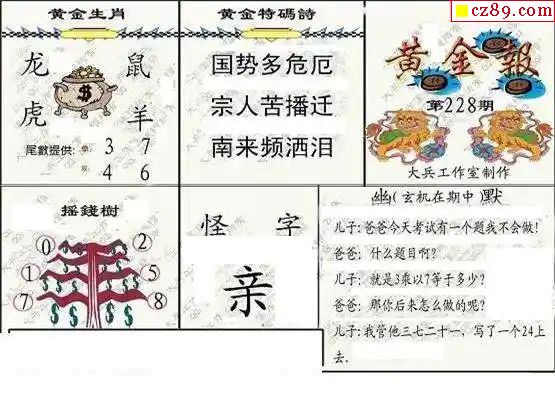 cz89.com
黄金生肖
龙 鼠
虎 羊
$
尾數提供: 单: 3 7
双: 4 6
黄金特碼詩
国势多危厄
宗人苦播迁
南来频洒泪
黄金報
第228期
大兵工作室制作
摇錢樹
0 2
1 5
7 8
怪 字
亲
幽(玄机在期中)默
儿子:爸爸今天考试有一个题我不会做!
爸爸:什么题目啊?
儿子:就是3乘以7等于多少?
爸爸:那你后来怎么做的呢?
儿子:我管他三七二十一,写了一个24上
去.